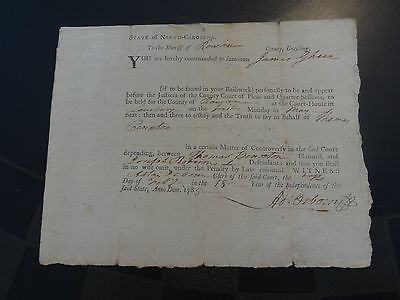 STATE of NORTH-CAROLINA.
To the Sheriff of Rowan County, Greeting.
YOU are hereby commanded to summon James
(if to be found in your Bailiwick) personally to be and appear
before the Justices of the County Court of Pleas and Quarter Sessions, to
be held for the County of Rowan at the Court-House in
on the first Monday in May
next; then and there to testify and the Truth to say in Behalf of Thomas
in a certain Matter of Controversy in the said Court
depending, between Thomas Plaintiff, and
Joseph Defendant; and this you shall
in no wise omit, under the Penalty by Law enjoined. WITNESS
Clerk of the said Court, the
Day of in the Year of the Independence of
the said State, Anno Dom. 178